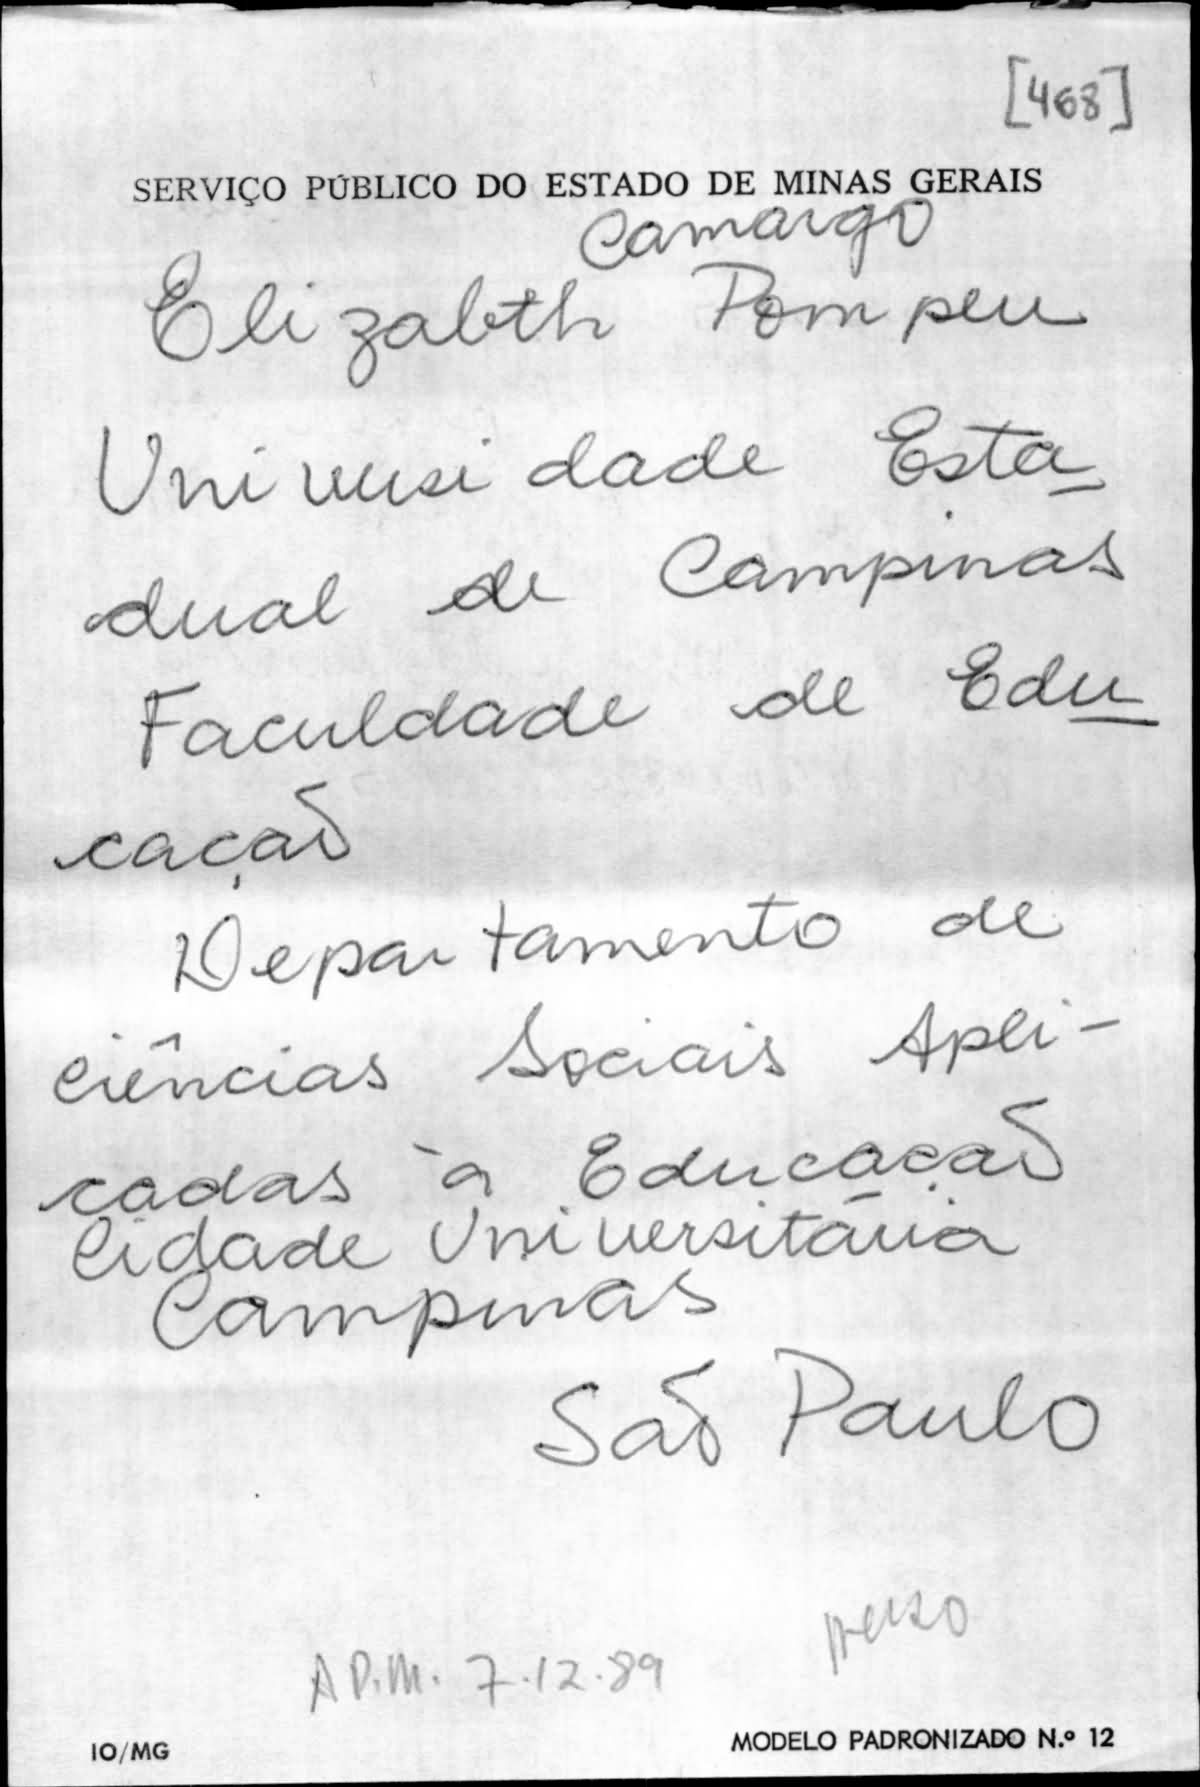 [468]
SERVIÇO PÚBLICO DO ESTADO DE MINAS GERAIS
Camargo
Elizabeth Pompeu
Universidade Esta
dual de Campinas
Faculdade de Edu
cação
Departamento de
Ciências Sociais Apli-
cadas à Educação
Cidade Universitária
Campinas
São Paulo
verso
A P.M. 7.12.89
IO/MG MODELO PADRONIZADO N.º 12